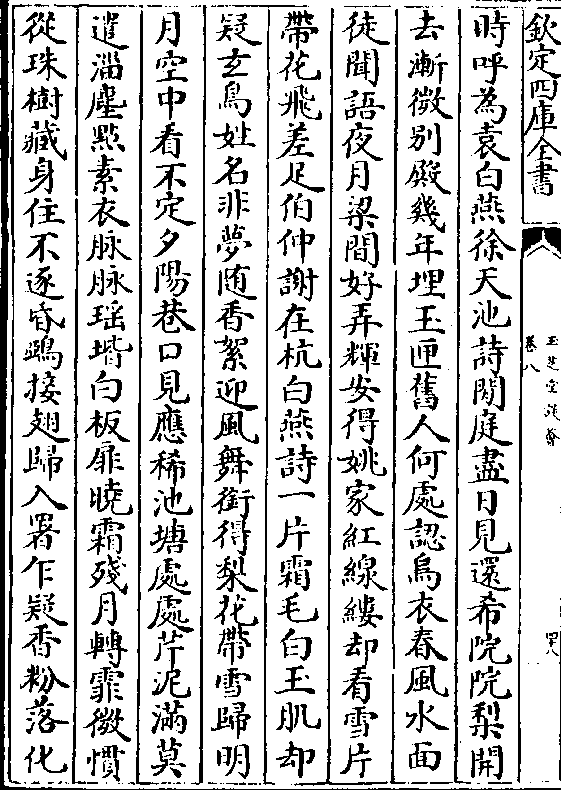 欽定四庫全書
玉芝堂談薈
卷八
四八
時呼為袁白燕徐天池詩閑庭盡日見還希院院梨開
去漸微别殿幾年埋玉匣舊人何處認烏衣春風水面
徒聞語夜月梁間好弄輝安得姚家紅線縷却看雪片
帶花飛差足伯仲謝在杭白燕詩一片霜毛白玉肌却
疑玄鳥姓名非夢随香絮迎風舞銜得梨花帶雪歸明
月空中看不定夕陽巷口見應稀池塘處處芹泥滿莫
遣淄塵點素衣脉脉瑶堦白板扉曉霜殘月轉霏微慣
從珠樹藏身住不逐昏鴉接翅歸入署乍疑香粉落化